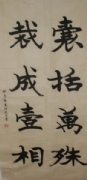 囊括萬殊
裁成壹相